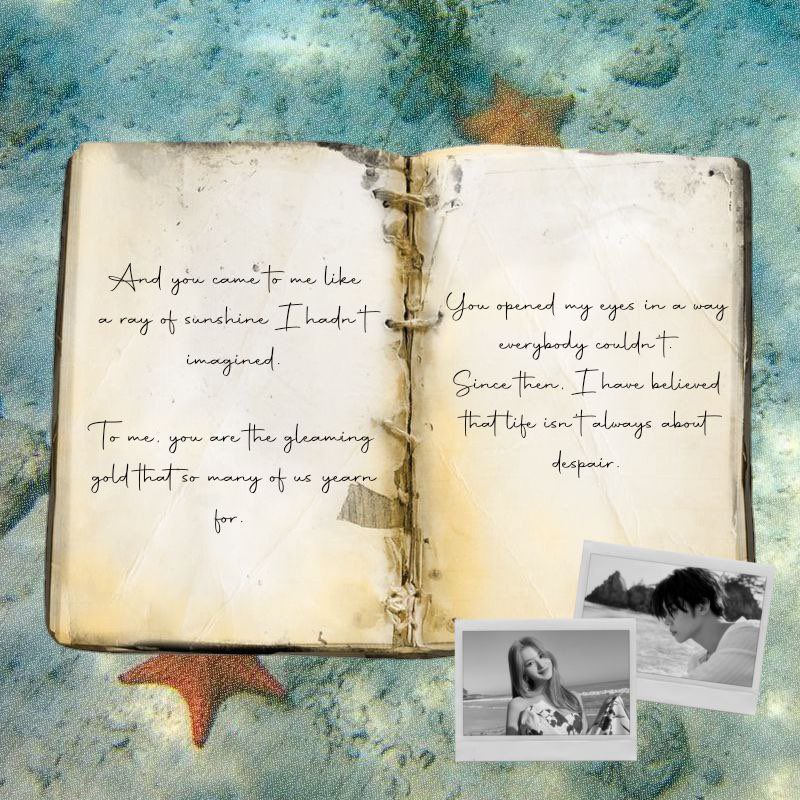 And you came to me like
a ray of sunshine I hadn't
imagined.
To me, you are the gleaming
gold that so many of us yearn
for.
You opened my eyes in a way
everybody couldn't.
Since then, I have believed
that life isn't always about
despair.